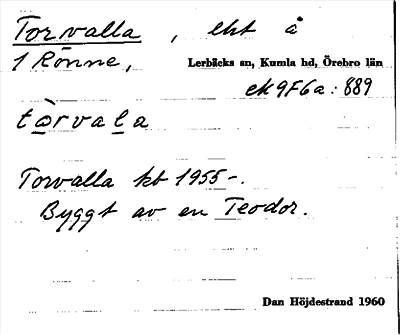 Torvalla, eht å
1 Rönne, Lerbäcks sn, Kumla hd, Örebro län
ek 9F6a:889
tòrvala
Torvalla kb 1955-.
Byggt av en Teodor.
Dan Höjdestrand 1960